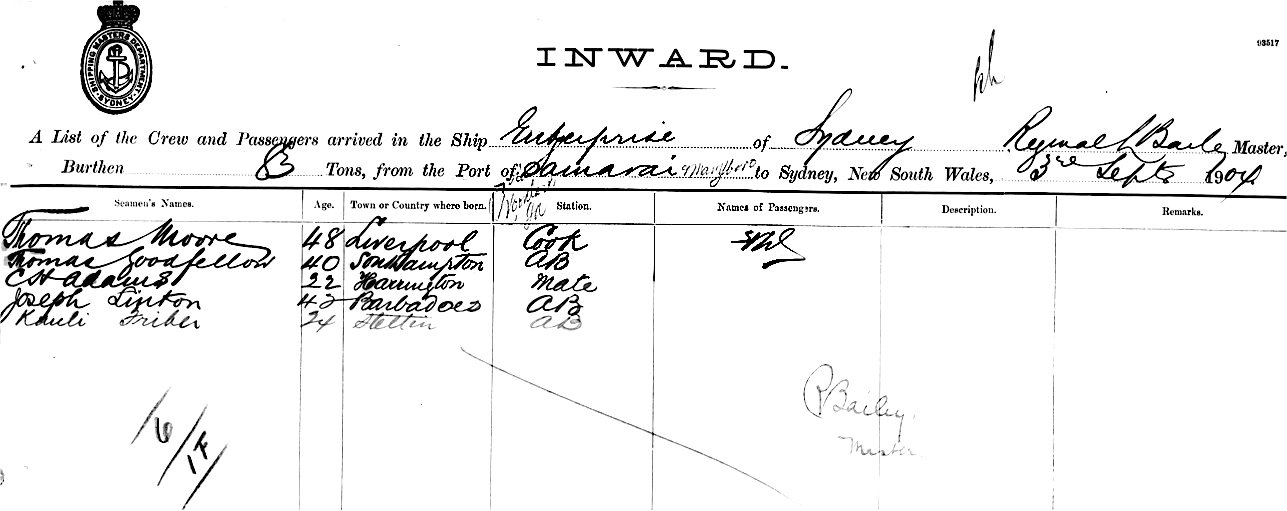 SHIPPING MASTERS DEPARTMENT. SYDNEY.
93517
INWARD.
A List of the Crew and Passengers arrived in the Ship Enterprise of Sydney Reginald Bailey Master,
Burthen Tons, from the Port of Samarai & Marybro to Sydney, New South Wales, 3rd Septr 1904
Seamen's Names. Age. Town or Country where born. Station. Names of Passengers. Description. Remarks.
Thomas Moore 48 Liverpool Cook Nil
Thomas Goodfellow 40 Southampton AB
C H Adams 22 Harrington Mate
Joseph Linton 42 Barbadoes AB
Kauli Friber 24 Stettin AB
R Bailey.
Master
16/14